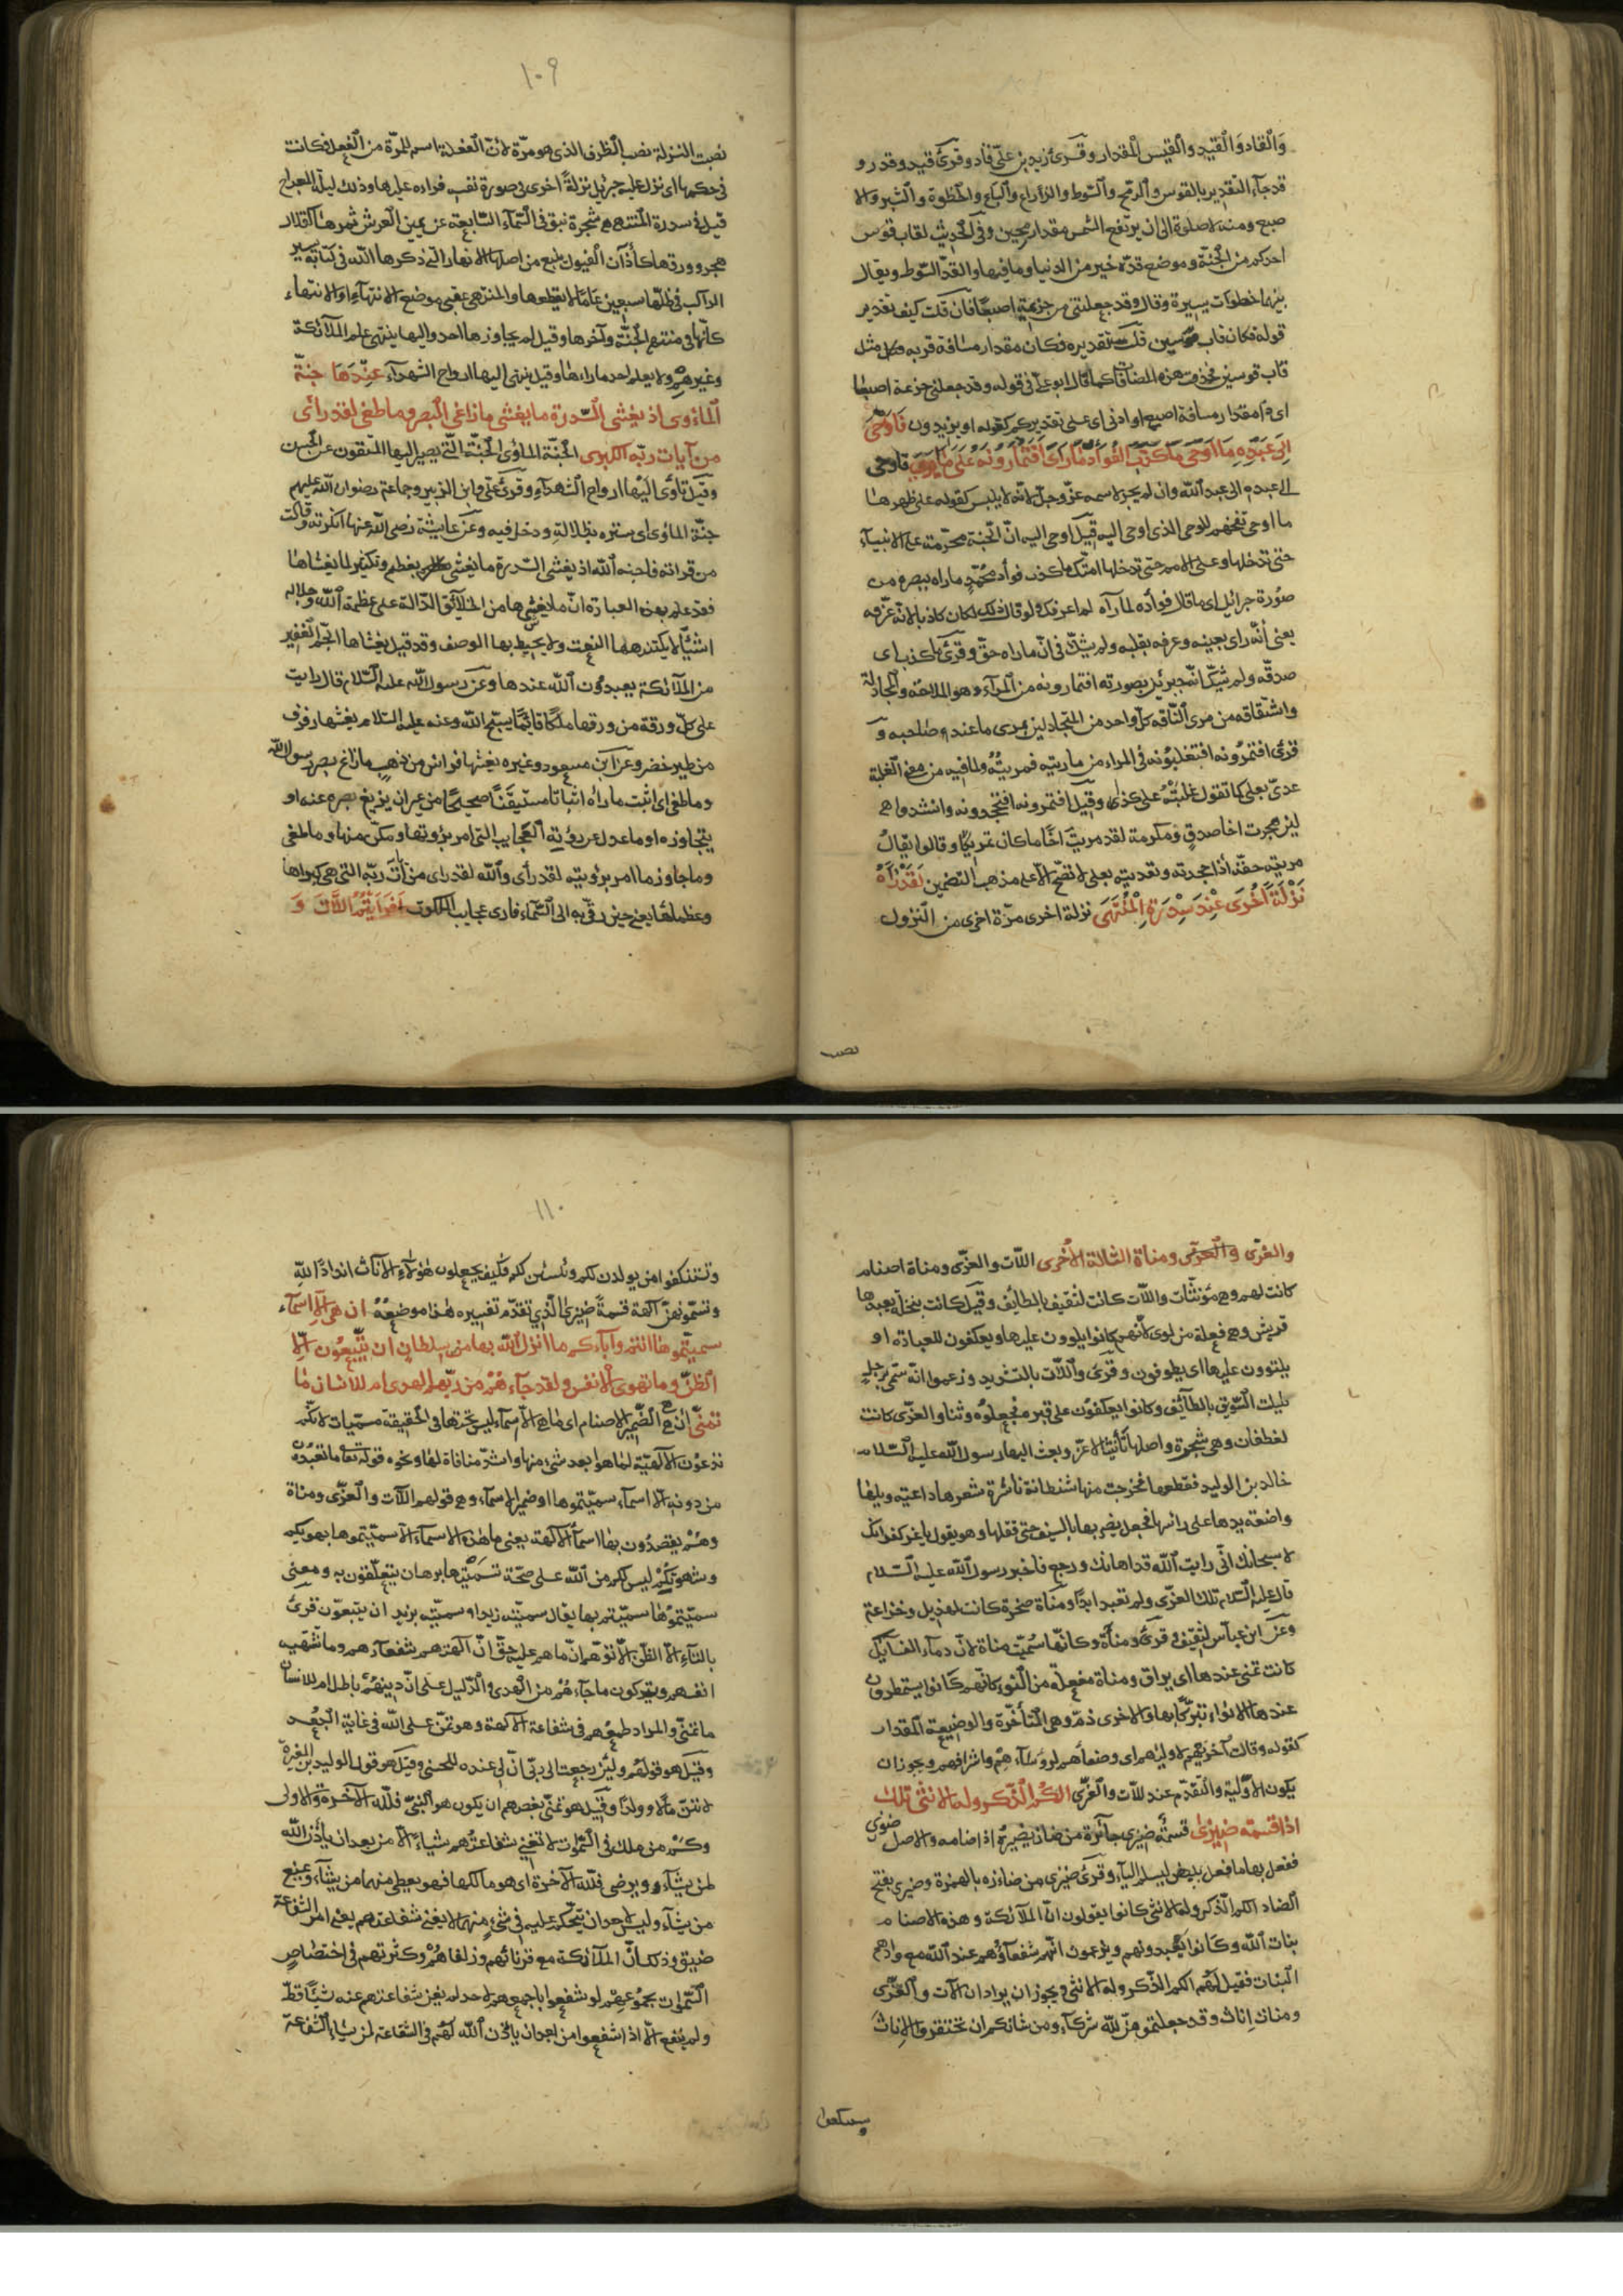 والقاد والقيد والقيس المقدار وقرئ زيد بن علي قاد وقرئ قيد وقدر و
قد جاء التقدير بالقوس والرمح والسوط والذراع والباع والخطوة والشبر والا
صبع ومنه لا صلوة الى ان يرتفع الشمس مقدار رمحين وفي الحديث لقاب قوس
احدكم من الجنة وموضع قده خير من الدنيا وما فيها والقد السوط ويقال
بينهما خطوات يسيرة وقال وقد جعلتني من حزيمة اصبعا فان قلت كيف تقدير
قوله فكان قاب قوسين قلت تقديره فكان مقدار مسافة قربه مثل
قاب قوسين فحذفت هذه المضافات كما قال ابو علي في قوله وقد جعلتني حزيمة اصبعا
اي ذا مقدار مسافة اصبع او ادنى اي على تقديركم كقوله او يزيدون فاوحى
الى عبده ما اوحى ما كذب الفؤاد ما رأى افتمارونه على ما يرى فاوحى
الى عبده الى عبد الله وان لم يجر لاسمه عز وجل لانه لا يلبس كقوله على ظهرها
ما اوحى تفخيم للوحي الذي اوحى اليه قيل اوحى اليه ان الجنة محرمة على الانبياء
حتى تدخلها وعلى الامم حتى تدخلها امتك ما كذب فؤاد محمد ما راه ببصره من
صورة جبرائيل اي ما قال فواده لما رآه لم اعرفك ولو قال ذلك لكان كاذبا لانه عرفه
يعني انه راى بعينه وعرفه بقلبه ولم يشك في ان ما راه حق وقرئ ما كذب اي
صدقه ولم يشك انه جبرئيل بصورته افتمارونه من المراء وهو الملاحة والمجادلة
واشتقاقه من مرى الناقة كل واحد من المتجادلين يمرى ما عند صاحبه و
قرئ افتمرونه افتغلبونه في المراء من ماريته فمريته ولما فيه من معنى الغلبة
عدى بعلى كما تقول غلبته على كذا وقيل افتمرونه افتجحدونه وانشدوا
لئن هجرت اخا صدق ومكرمة لقد مريت اخا ما كان يمريكا وقالوا يقال
مريته حقه اذا جحدته وتعديته بعلى لا تصح الا على مذهب التضمين لقد رآه
نزلة اخرى عند سدرة المنتهى نزلة اخرى مرة اخرى من النزول
نصب
١٠٩
نصبت النزلة نصب الظرف الذي هو مرة لان الفعلة اسم للمرة من الفعل فكانت
في حكمها اى نزل عليه جبرئيل نزلة اخرى في صورة نفسه فراه عليها وذلك ليلة المعراج
قيل في سدرة المنتهى هي شجرة نبق في السماء السابعة عن يمين العرش ثمرها كقلال
هجر وورقها كآذان الفيول ينبع من اصلها الانهار التي ذكرها الله في كتابه يسير
الراكب في ظلها سبعين عاما لا يقطعها والمنتهى بمعنى موضع الانتهاء او الانتهاء
كانها في منتهى الجنة وآخرها وقيل لم يجاوزها احد واليها ينتهى علم الملائكة
وغيرهم ولا يعلم احد ما وراءها وقيل ينتهى اليها ارواح الشهداء عندها جنة
المأوى اذ يغشى السدرة ما يغشى ما زاغ البصر وما طغى لقد رأى
من آيات ربه الكبرى الجنة المأوى الجنة التي يصير اليها المتقون عن الحسن
وقيل تأوى اليها ارواح الشهداء وقرئ علي وابن الزبير وجماعة رضوان الله عليهم
جنة المأوى اي ستره بظلاله ودخل فيه وعن عايشة رضى الله عنها انكرته وقالت
من قرا به فاجنه الله اذ يغشى السدرة ما يغشى تعظيم وتكثير لما يغشاها
فقد علم بهذه العبارة ان ما يغشيها من الخلائق الدالة على عظمة الله وجلاله
اشياء لا يكتنهها النعت ولا يحيط بها الوصف وقد قيل يغشاها الجم الغفير
من الملائكة يعبدون الله عندها وعن رسول الله عليه السلام قال رايت
على كل ورقة من ورقها ملكا قائما يسبح الله وعنه عليه السلام يغشها رفرف
من طير خضر وعن ابن مسعود وغيره يغشها فراش من ذهب ما زاغ بصر رسول الله
وما طغى اي اثبت ما راه اثباتا مستيقنا صحيحا من غير ان يزيغ بصره عنه او
يتجاوزه او ما عدل عن رؤية العجايب التي امر برؤيتها ومكن منها وما طغى
وما جاوز ما امر برؤيته لقد رأى والله لقد راى من آيات ربه التي هي كبراها
وعظماها يعني حين رقى به الى السماء فارى عجايب الملكوت افرايتم اللات و
والعزى ومناة الثالثة الاخرى اللات والعزى ومناة اصنام
كانت لهم وهي مؤنثات واللات كانت لثقيف بالطايف وقيل كانت بنخلة يعبدها
قريش وهي فعلة من لوى لانهم كانوا يلوون عليها ويعكفون للعبادة او
يلتوون عليها اي يطوفون وقرئ واللات بالتشديد وزعموا انه سمى برجل
يلت السويق بالطائف وكانوا يعكفون على قبره فجعلوه وثنا والعزى كانت
لغطفان وهي شجرة واصلها تأنيث الاعز وبعث اليها رسول الله عليه السلام
خالد بن الوليد فقطعها فخرجت منها شيطانة ناشرة شعرها داعية ويلها
واضعة يدها على راسها فجعل يضربها بالسيف حتى قتلها وهو يقول يا عز كفرانك
لا سبحانك اني رايت الله قد اهانك ورجع فاخبر رسول الله عليه السلام
قال عليه السلام تلك العزى ولم تعبد ابدا ومناة صخرة كانت لهذيل وخزاعة
وعن ابن عباس لثقيف وقرئ ومناءة وكانها سميت مناة لان دماء النسائك
كانت تمنى عندها اي يراق ومناة مفعلة من النوء كانهم كانوا يستمطرون
عندها الانواء تبركا بها والاخرى ذم وهي المتأخرة الوضيعة المقدار
كقوله وقالت اخريهم لاوليهم اي وضعاءهم لرؤساءهم واشرافهم ويجوز ان
يكون الاولية والتقدم عند للات والعزى الكم الذكر وله الانثى تلك
اذا قسمة ضيزى قسمة ضيزى جائرة من ضازه يضيزه اذا ضامه والاصل ضوزى
ففعل بها ما فعل ببيض ليسلم الياء وقرئ ضئزى من ضأزه بالهمزة وضيزى بفتح
الضاد الكم الذكر وله الانثى كانوا يقولون ان الملائكة وهذه الاصنام
بنات الله وكانوا يعبدونهم ويزعمون انهم شفعاؤهم عند الله مع وأدهم
البنات فقيل لهم الكم الذكر وله الانثى ويجوز ان يراد ان اللات والعزى
ومنات اناث وقد جعلتموهن لله شركاء ومن شانكم ان تحتقروا الاناث
وتستنكفوا
١١٠
وتستنكفوا من يولدن لكم وينسبن لكم فكيف يجعلون هؤلاء الاناث اندادا لله
وتسمونهن آلهة قسمة ضيزى الذي تقدم تفسيره هذا موضعه ان هي الا اسماء
سميتموها انتم وآباءكم ما انزل الله بها من سلطان ان يتبعون الا
الظن وما تهوى الانفس ولقد جاءهم من ربهم الهدى ام للانسان ما
تمنى ان هي الضمير للاصنام اي ما هي الا اسماء ليس تحتها في الحقيقة مسميات لانكم
تدعون الالهية لما هو ابعد شيء منها واشد منافاة لها ونحوه قوله تعالى ما تعبدون
من دونه الا اسماء سميتموها او ضمير الاسماء وهي قولهم اللات والعزى ومناة
وهم يقصدون بها اسماء الالهة يعني ما هذه الاسماء الا سميتموها بهويكم
وشهوتكم ليس لكم من الله على صحة تسميتها برهان يتعلقون به ومعنى
سميتموها سميتم بها يقال سميته زيدا وسميته بزيد ان يتبعون قرئ
بالتاء الا الظن الا توهم ان ما هم عليه حق ان آلهتهم شفعاءهم وما تشتهيه
انفسهم ويتركون ما جاءهم من الهدى والدليل على ان دينهم باطل ام للانسان
ما تمنى والمراد طمعهم في شفاعة الآلهة وهو تمن على الله في غاية البعد
وقيل هو قولهم ولئن رجعت الى ربي ان لي عنده للحسنى وقيل هو قول الوليد بن المغيرة
لاوتين مالا وولدا وقيل هو تمنى بعضهم ان يكون هو النبي فلله الآخرة والاولى
وكم من ملك في السموات لا تغني شفاعتهم شيئا الا من بعد ان يأذن الله
لمن يشاء ويرضى فلله الآخرة اي هو مالكها فهو يعطى منهما من يشاء ويمنع
من يشاء وليس لاحد ان يتحكم عليه في شيء منهما لا يغني شفاعتهم يعني امر الشفاعة
ضيق وذلك ان الملائكة مع قربائهم وزلفاهم وكثرتهم في اختصاص
السموات بجموعهم لو شفعوا باجمعهم لاحد لم يغن شفاعتهم عنه شيئا قط
ولم ينفع الا اذا شفعوا من بعد ان يأذن الله لهم في الشفاعة لمن يشاء الشفاعة